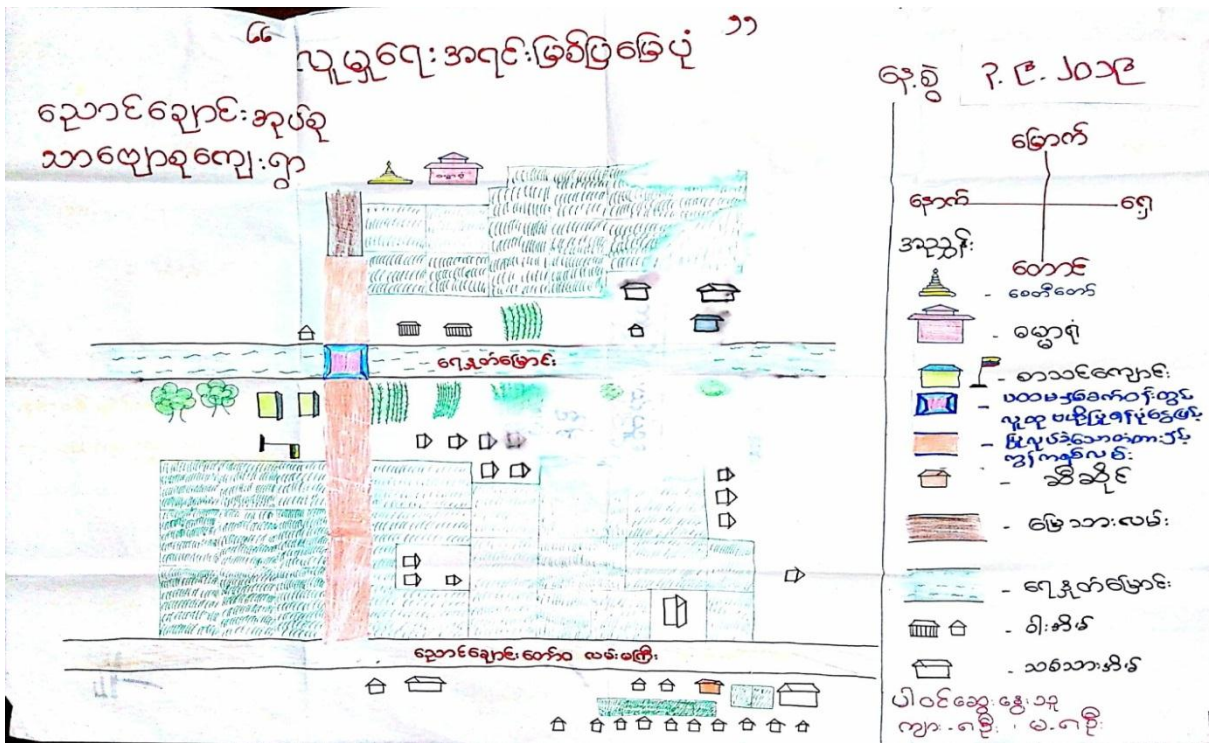 “ လူမှုရေးအရင်းမြစ်ပြမြေပုံ ”
ညောင်ချောင်းအုပ်စု
သာဗျောစုကျေးရွာ
နေ့စွဲ ၃.၉.၂၀၁၉
မြောက်
နောက် ရှေ့
တောင်
အညွှန်း
- စေတီတော်
- ဓမ္မာရုံ
- စာသင်ကျောင်း
- ပထမနှစ်စက်ဝန်းတွင်
လူထုဗဟိုပြုရန်ပုံငွေဖြင့်
- ပြုလုပ်ခဲ့သောတံတားနှင့်
ကွန်ကရစ်လမ်း
- ဆီဆိုင်
- မြေသားလမ်း
- ရေနုတ်မြောင်း
- ဝါးအိမ်
- သစ်သားအိမ်
ရေနုတ်မြောင်း
ညောင်ချောင်းတော်ဝ လမ်းမကြီး
ပါဝင်ဆွေးနွေးသူ
ကျား-၈ဦး၊ မ-၈ဦး